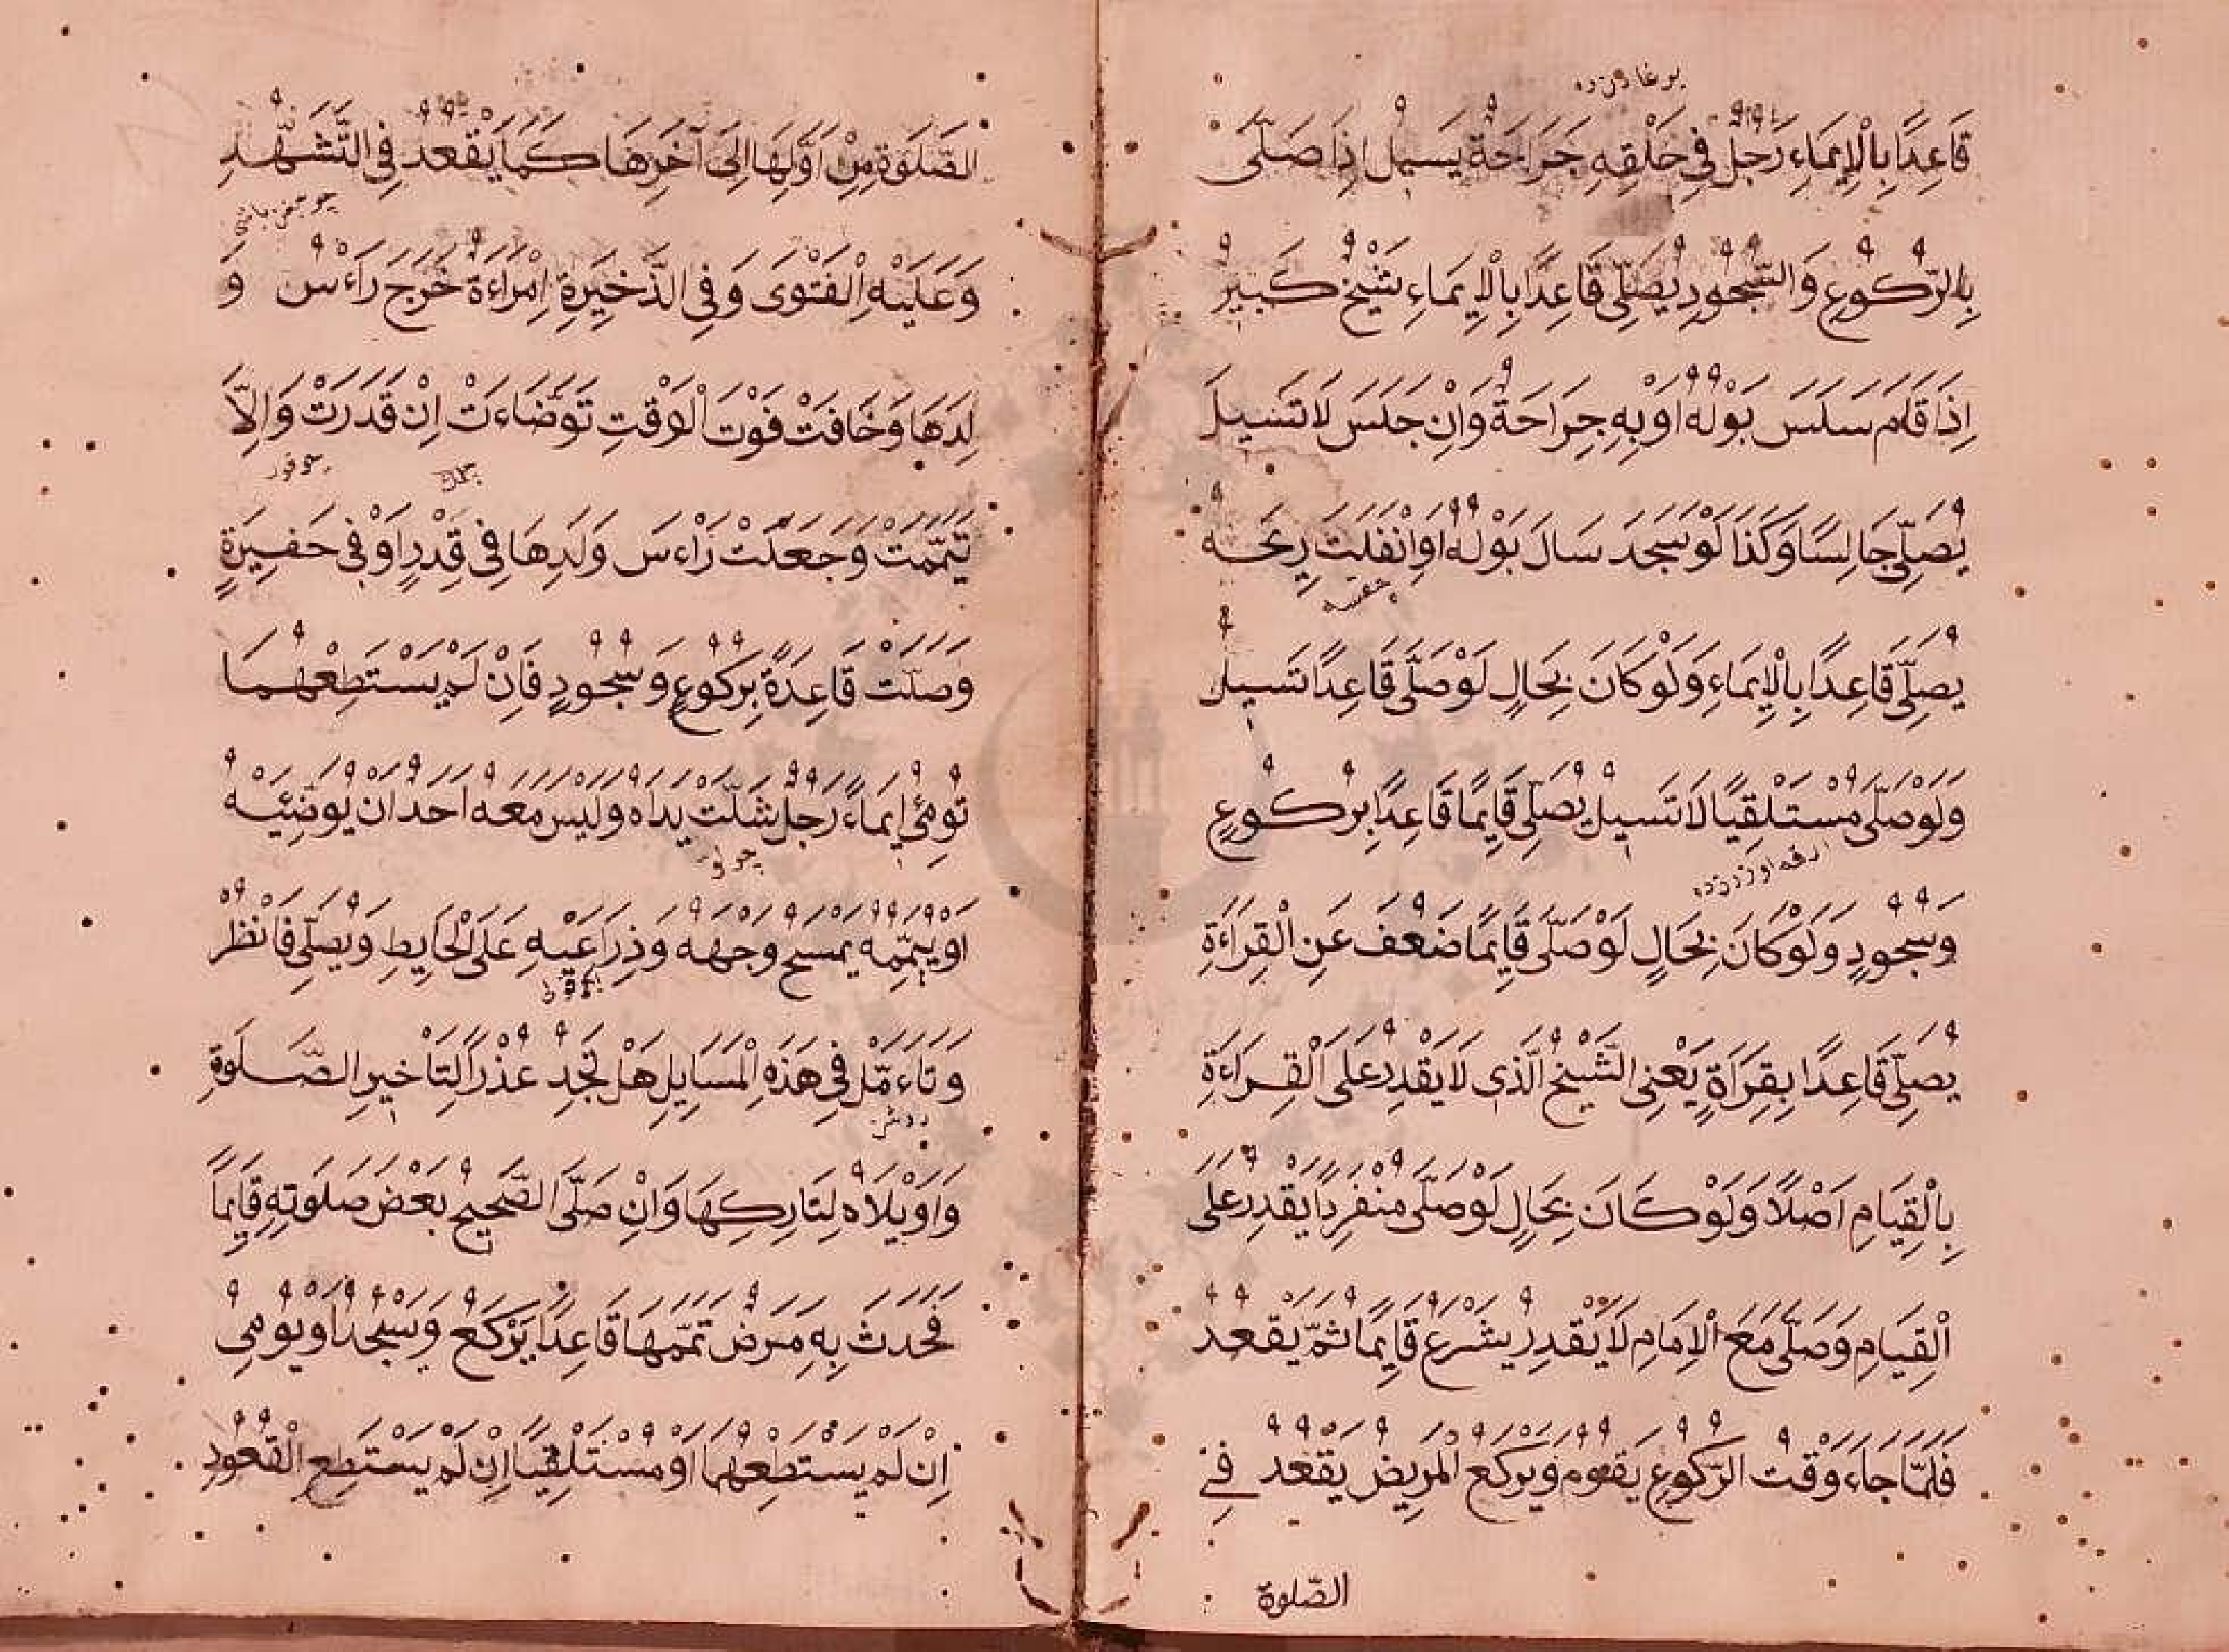 قَاعِدًا بِالْإِيمَاءِ رَجُلٌ فِي حَلْقِهِ جَرَاحَةٌ يَسِيلُ إِذَا صَلَّى
بِالرُّكُوعِ وَالسُّجُودِ يُصَلِّي قَاعِدًا بِالْإِيمَاءِ شَيْخٌ كَبِيرٌ
اِذَا قَامَ سَلَسَ بَوْلُهُ اَوْ بِهِ جِرَاحَةٌ وَاِنْ جَلَسَ لَا تَسِيلُ
يُصَلِّي جَالِسًا وَكَذَا لَوْ سَجَدَ سَالَ بَوْلُهُ اَوِ انْفَلَتَ رِيحُهُ
يُصَلِّي قَاعِدًا بِالْإِيمَاءِ وَلَوْ كَانَ بِحَالٍ لَوْ صَلَّى قَاعِدًا تَسِيلُ
وَلَوْ صَلَّى مُسْتَلْقِيًا لَا تَسِيلُ يُصَلِّي قَايِمًا قَاعِدًا بِرُكُوعٍ
وَسُجُودٍ وَلَوْ كَانَ بِحَالٍ لَوْ صَلَّى قَايِمًا ضَعُفَ عَنِ الْقِرَاءَةِ
يُصَلِّي قَاعِدًا بِقِرَاةٍ يَعْنِى الشَّيْخُ الَّذِى لَا يَقْدِرُ عَلَى الْقِرَاءَةِ
بِالْقِيَامِ اَصْلًا وَلَوْ كَانَ بِحَالٍ لَوْ صَلَّى مُنْفَرِدًا يَقْدِرُ عَلَى
الْقِيَامِ وَصَلَّى مَعَ الْاِمَامِ لَا يَقْدِرُ يَشْرَعُ قَايِمًا ثُمَّ يَقْعُدُ
فَلَمَّا جَاءَ وَقْتُ الرُّكُوعِ يَقُومُ وَيَرْكَعُ الْمَرِيضُ يَقْعُدُ فِي
الصّلوة
الصَّلَوةِ مِنْ اَوَّلِهَا اِلَى آخِرِهَا كَمَا يَقْعُدُ فِي التَّشَهُّدِ
وَعَلَيْهِ الْفَتْوَى وَفِي الذَّخِيرَةِ اِمْرَاءَةٌ خَرَجَ رَاءْسُ وَ
لَدِهَا وَخَافَتْ فَوْتَ الْوَقْتِ تَوَضَّاءَتْ اِنْ قَدَرَتْ وَاِلَّا
تَيَمَّمَتْ وَجَعَلَتْ رَاءْسَ وَلَدِهَا فِي قِدْرٍ اَوْ فِي حَفِيرَةٍ
وَصَلَّتْ قَاعِدَةً بِرُكُوعٍ وَسُجُودٍ فَاِنْ لَمْ يَسْتَطِعْهُمَا
تُومِئُ اِيمَاءً رَجُلٌ شَلَّتْ يَدَاهُ وَلَيْسَ مَعَهُ اَحَدٌ اَنْ يُوَضِّئَيْهُ
اَوْ يُيَمِّمُهُ يَمْسَحُ وَجْهَهُ وَذِرَاعَيْهِ عَلَى الْحَايِطِ وَيُصَلِّي فَانْظُرْ
وَتَاءَمَّلْ فِي هَذِهِ الْمَسَايِلِ هَلْ تَجِدُ عُذْرًا لِتَاْخِيرِ الصَّلَوةِ
وَاوَيْلَاهُ لِتَارِكِهَا وَاِنْ صَلَّى الصَّحِيحُ بَعْضَ صَلَوتِهِ قَايِمًا
فَحَدَثَ بِهِ مَرَضٌ تَمَّمَهَا قَاعِدًا يَرْكَعُ وَيَسْجُدُ اَوْ يُومِى
اِنْ لَمْ يَسْتَطِعْهُمَا اَوْ مُسْتَلْقِيًا اِنْ لَمْ يَسْتَطِعِ الْقُعُودَ